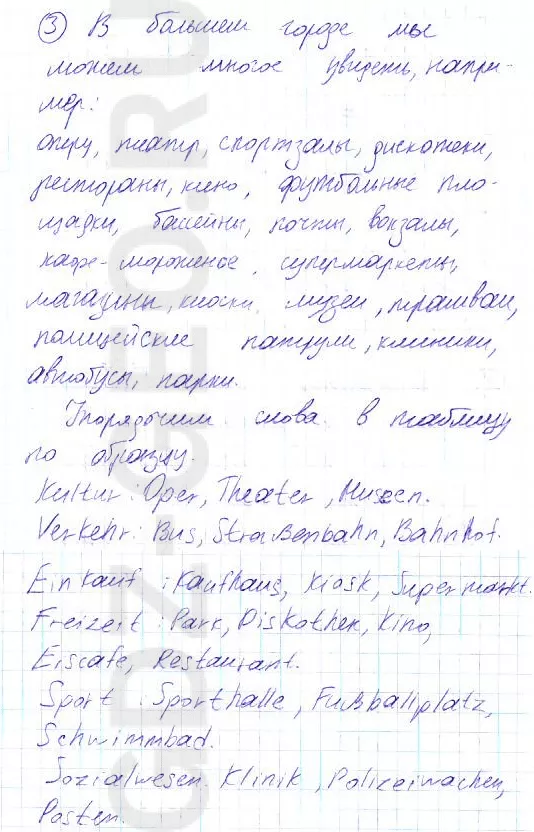 ③ В большем городе мы
можем многое увидеть, напри-
мер:
оперу, театр, спортзалы, дискотеки,
рестораны, кино, футбольные пло-
щадки, бассейны, почты, вокзалы,
кафе-мороженое, супермаркеты,
магазины, киоски, музеи, трамваи,
полицейские патрули, клиники,
автобусы, парки.
Упорядочим слова в таблицу
по образцу.
Kultur: Oper, Theater, Museen.
Verkehr: Bus, Straßenbahn, Bahnhof.
Einkauf: Kaufhaus, Kiosk, Supermarkt.
Freizeit: Park, Diskothek, Kino,
Eiscafe, Restaurant.
Sport: Sporthalle, Fußballplatz,
Schwimmbad.
Sozialwesen. Klinik, Polizeiwachen,
Posten.
GDZ-GEO.RU